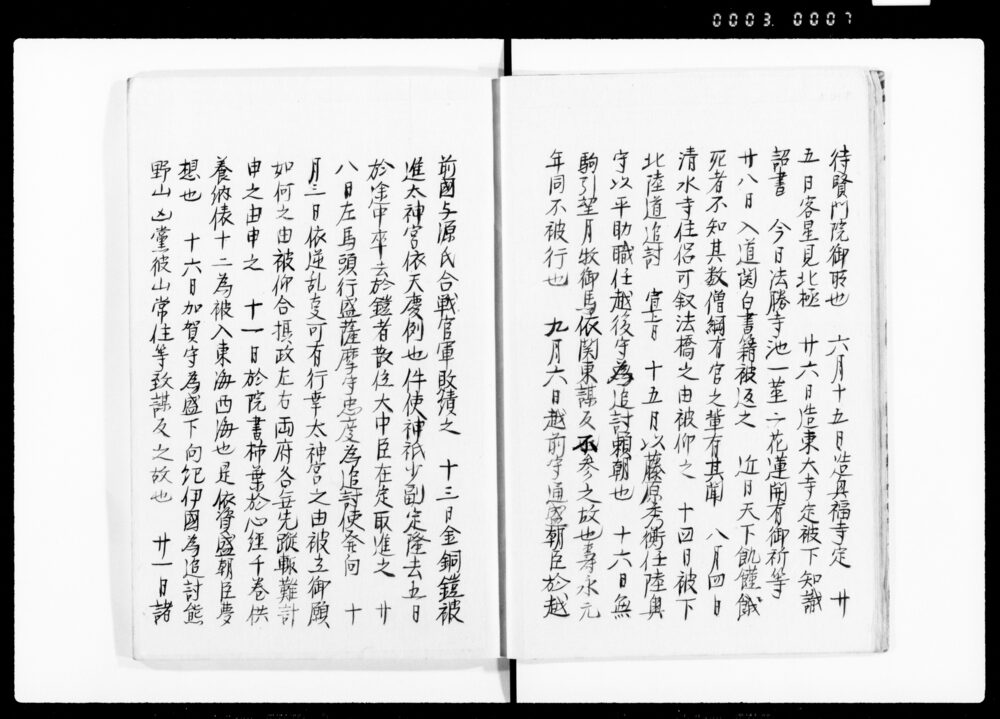 0003 0007
待賢門院御所也　六月十五日造真福寺定　廿
五日客星見北極　廿六日造東大寺定被下知識
詔書　今日法勝寺池一茎二花蓮開有御祈等
廿八日入道関白書籍被返之　近日天下飢饉餓
死者不知其数僧綱有官之輩有其聞　八月四日
清水寺住侶可叙法橋之由被仰之　十四日被下
北陸道追討宣旨　十五月以藤原秀衡任陸奥
守以平助職任越後守為追討頼朝也　十六日無
駒引望月牧御馬依関東謀反不参之故也寿永元
年同不被行也　九月六日越前守通盛朝臣於越
前國与源氏合戦官軍敗績之　十三日金銅鎧被
進太神宮依天慶例也件使神祇少副定隆去五日
於途中卒去於鎧者散位大中臣在定取進之　廿
八日左馬頭行盛薩摩守忠度為追討使発向　十
月三日依逆乱事可有行幸太神宮之由被立御願
如何之由被仰合摂政左右両府各無先蹤輙難計
申之由申之　十一日於院書柿葉於心経千巻供
養納俵十二為被入東海西海也是依資盛朝臣夢
想也　十六日加賀守為盛下向紀伊國為追討熊
野山凶黨彼山常住等致謀反之故也　廿一日諸